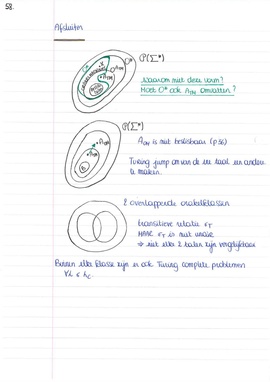 58.
Afsluiter
P(Σ*)
Waarom niet deze vorm?
Moet O* ook A_TM omvatten?
P(Σ*)
A_TM is niet beslisbaar (p 56)
Turing jump om van de ene taal een andere
te maken.
2 overlappende orakelklassen
transitieve relatie ≤T
MAAR ≤T is niet
⇒ niet elke 2 talen zijn vergelijkbaar
Binnen elke klasse zijn er ook Turing complete problemen